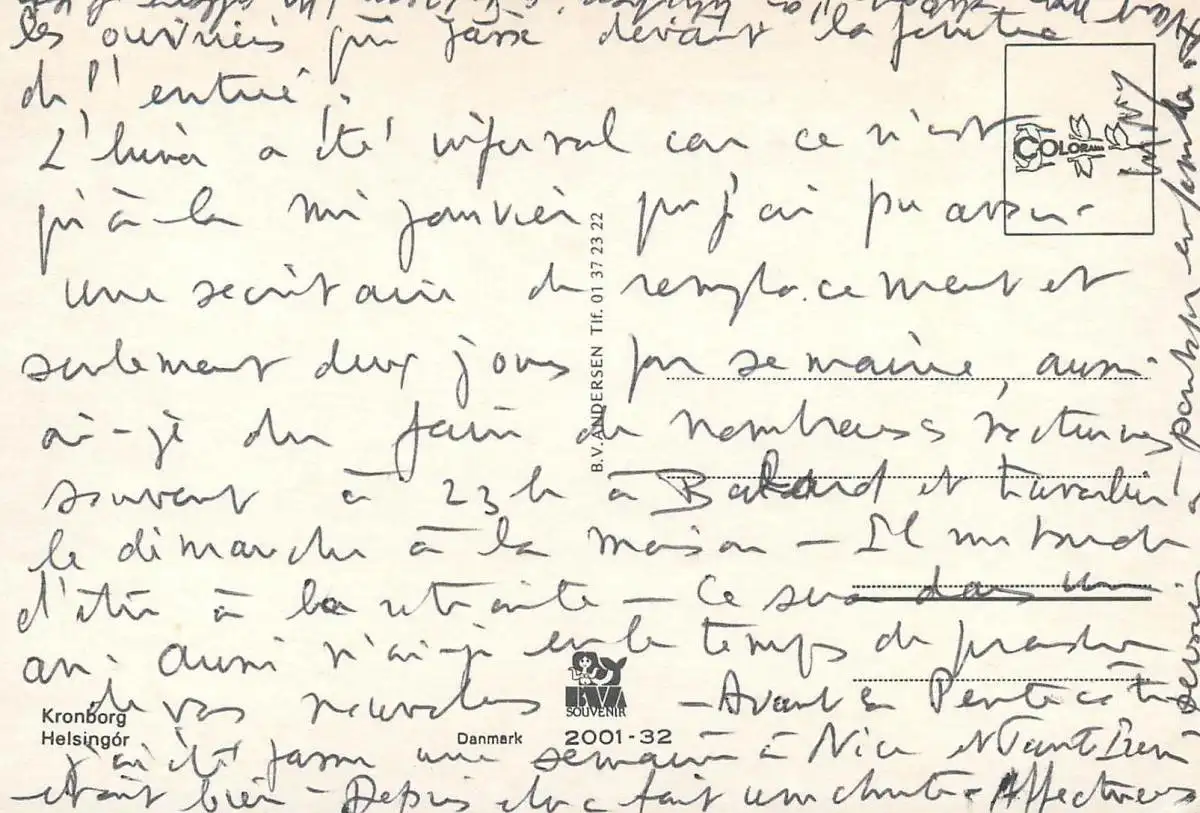 les ouvriers qui passe devant la fenêtre
de l'entrée.
L'hiver a été infernal car ce n'est
qu'à la mi janvier que j'ai pu avoir
une secrétaire de remplacement et
seulement deux jours par semaine, aussi
ai-je du faire de nombreuses nocturnes
souvent à 23 h à Balard et travailler
le dimanche à la maison - Il me tarde
d'être à la retraite - Ce sera dans un
an. Aussi n'ai-je eu le temps de prendre
de vos nouvelles - Avant la Pentecôte
j'ai été passer une semaine à Nice et
était bien - Depuis elle a fait une chute - Affectueuses
COLORAMA
B.V. ANDERSEN Tlf. 01 37 23 22
BVA
SOUVENIR
Kronborg
Helsingór
Danmark 2001-32